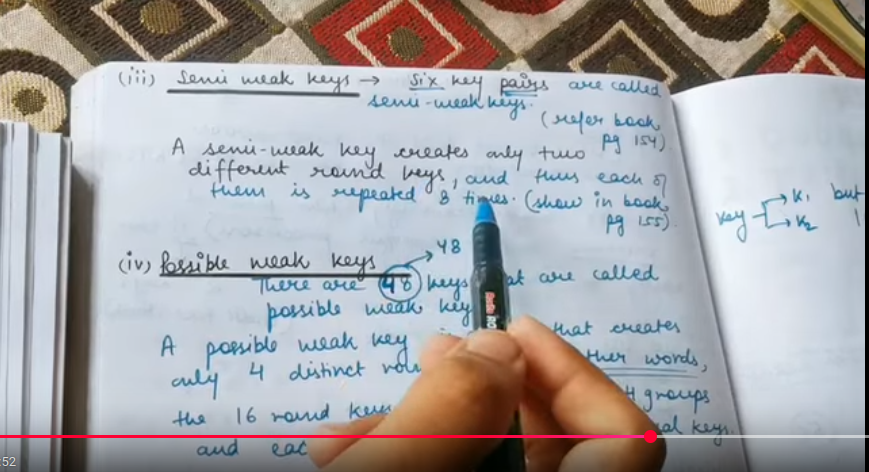 (iii) Semi weak keys → Six key pairs are called
semi-weak keys.
(refer book
pg 154)
A semi-weak key creates only two
different round keys, and thus each of
them is repeated 8 times. (show in book
pg 155).
key K1 but
K2 1
(iv) Possible weak keys 48
There are 48 keys at are called
possible weak key
A possible weak key that creates
only 4 distinct ther words,
the 16 round keys 4 groups
and eac al keys.
:52